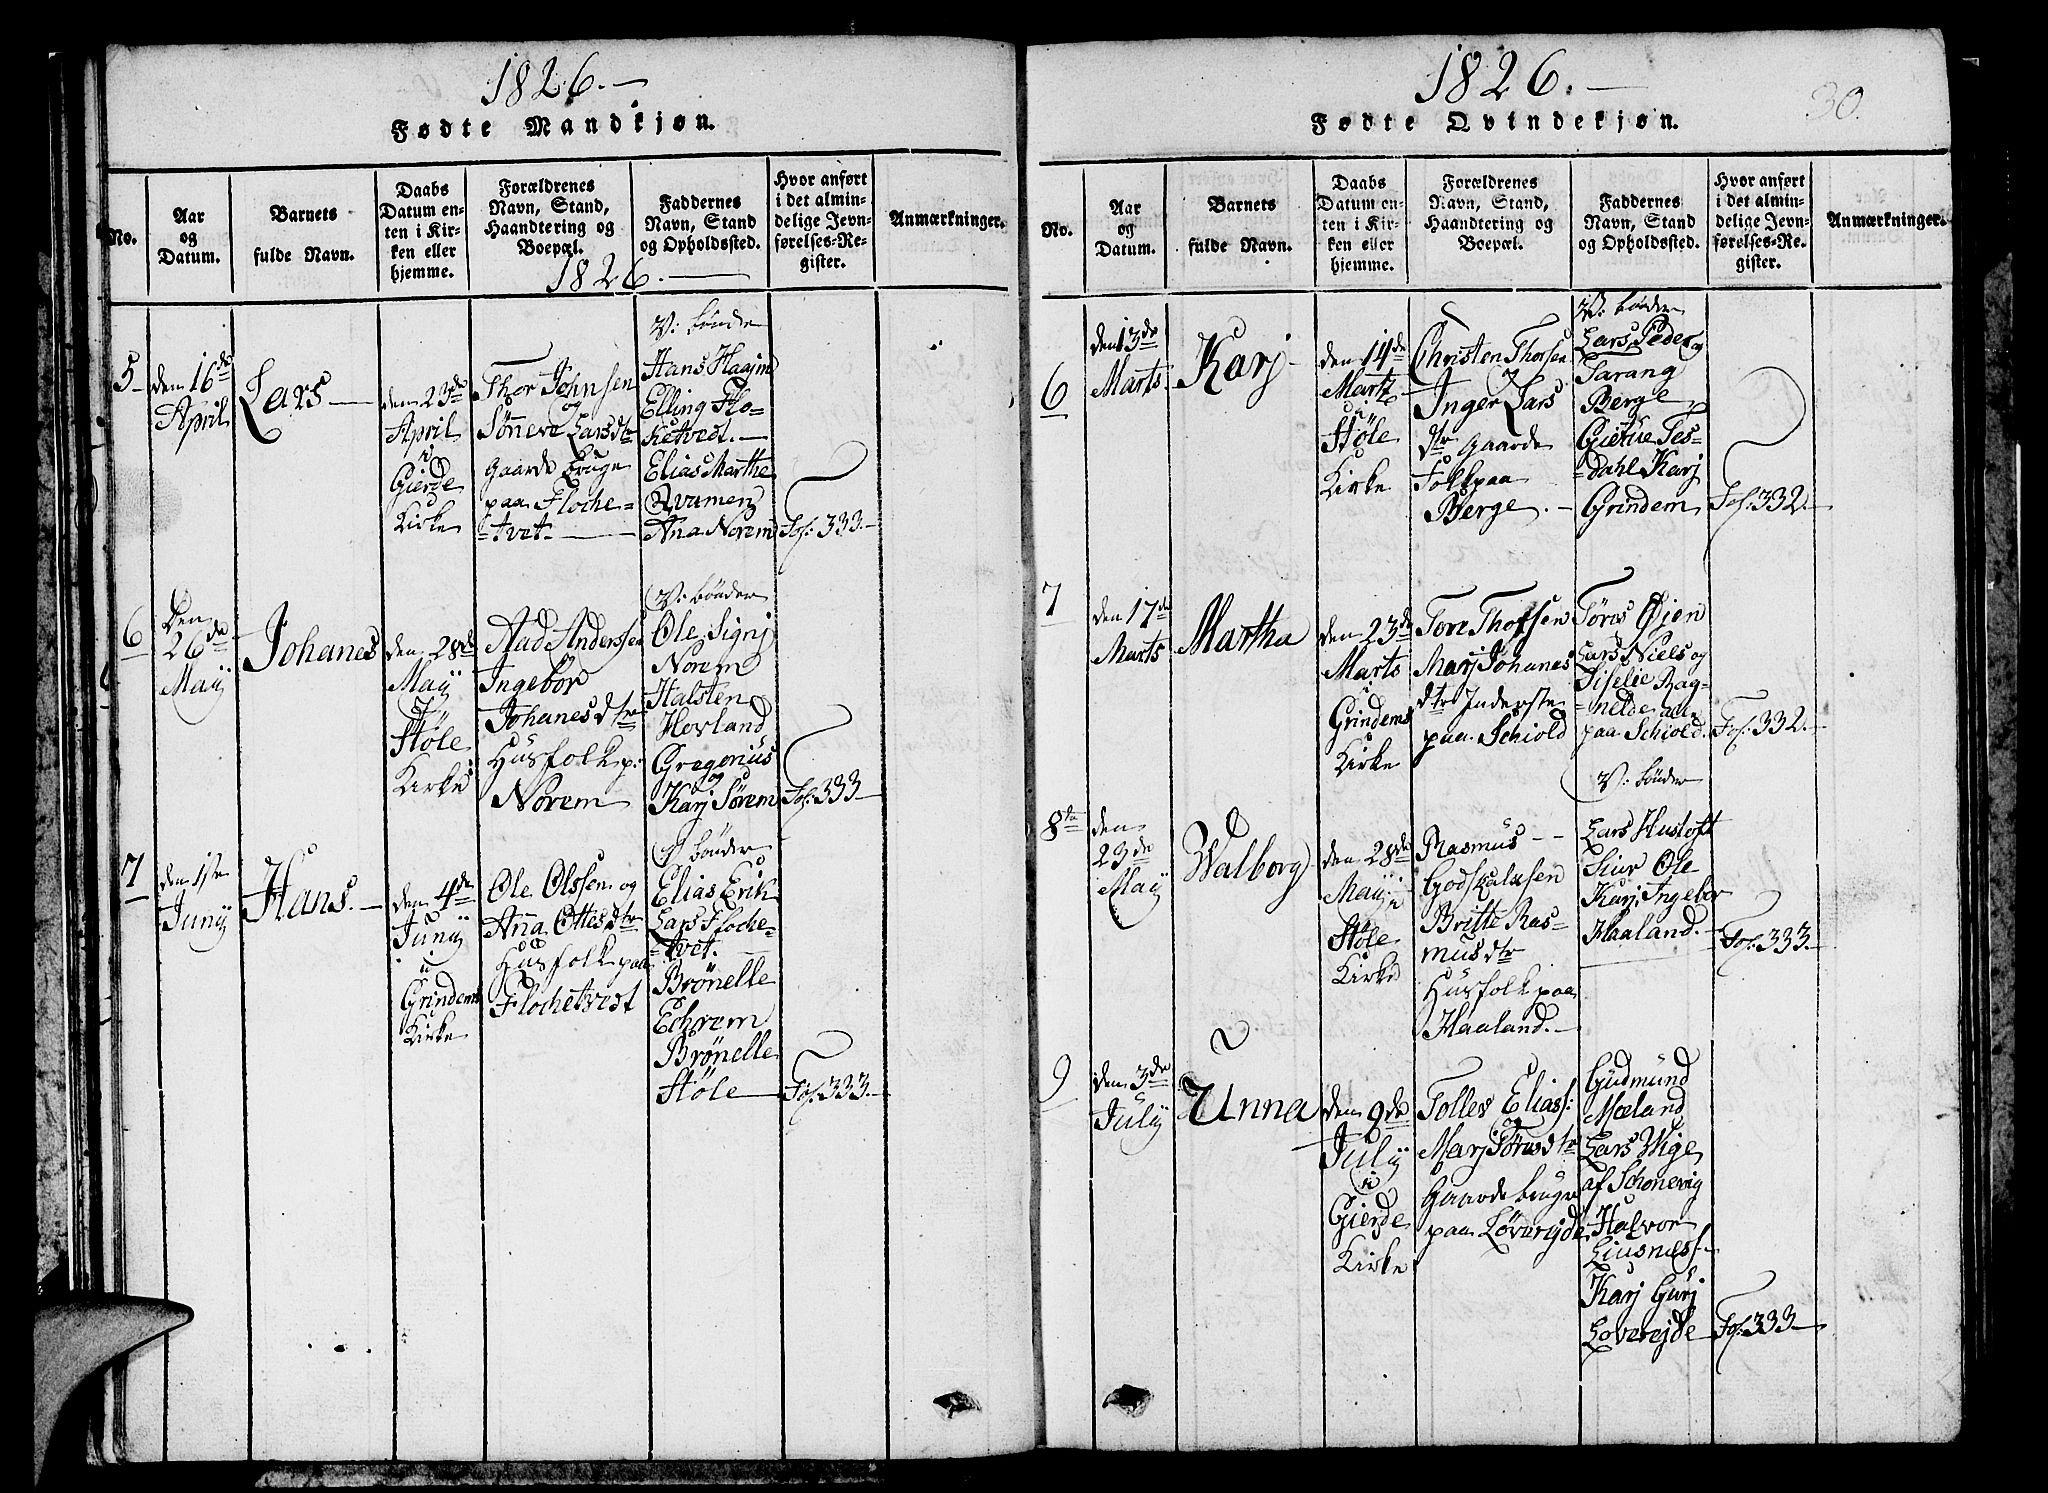 1826.—
Fødte Mandkjøn.
No.
Aar
og
Datum.
Barnets
fulde Navn.
Daabs
Datum en-
ten i Kir-
ken eller
hjemme.
Forældrenes
Navn, Stand,
Haandtering og
Boepæl.
Faddernes
Navn, Stand
og Opholdssted.
Hvor anført
i det almin-
delige Jevn-
førelses-Re-
gister.
Anmærkninger.
1826.—
5
den 16de
April
Lars—
den 23de
April
i
Gierde
Kirke
Thor Johnsen
og
Sønneve Larsdtr
Gaarde bruge
paa Floche-
tvet.—
V: bönder
Hans Haajm
Elling Flo-
ketvedt.—
Elias Marthe
Qvamen
Ana Norem
Fol: 333.—
6
Den
26de
Maÿ
Johanes
den 28de
Maÿ
i
Støle
Kirke
Aad Anderssen
Ingebor
Johanesdtr
Husfolk p:
Norem
V: bönder
Ole, Signj
Norem
Halsten
Hovland
Gregorius
og
Karj Sørem
Fol: 333—
7
den 1ste
Junÿ
Hans.—
den 4de
Junÿ
i
Grindems
Kirke
Ole Olssen og
Anna Ottesdtr
Husfolk paa
Flochetvedt
V bönder
Elias Erik
Lars Floche-
tvet.
Brønelle
Echrem
Brønelle
Støle—
Fol: 333.—
1826.—
30.
Fødte Qvindekjøn.
No.
Aar
og
Datum.
Barnets
fulde Navn.
Daabs
Datum en-
ten i Kir-
ken eller
hjemme.
Forældrenes
Navn, Stand,
Haandtering og
Boepæl.
Faddernes
Navn, Stand
og Opholdssted.
Hvor anført
i det almin-
delige Jevn-
førelses-Re-
gister.
Anmærkninger.
6
den 13de
Marts
Karj
den 14de
Martz
i
Støle
Kirke
Christen Thorsen
Inger Lars
dtr Gaarde
Folk paa
Berge.—
V: bönder
Lars, Peder og
Tarang
Berge
Giertue Tes-
dahl Karj
Grindem
Fol: 332.—
7
den 17de
Marts
Martha
den 23de
Marts
i
Grindems
Kirke
Tore Thorsen
Marj Johanes
dtr Inderste
paa Schiold
Tøres Øjen
Lars Niels og
Siselie Rag-
nelde alle
paa Schiold.
Fol: 332.—
8de
den
23de
Maÿ
Walborg
den 28de
Maÿ i
Støle
Kirke
Rasmus --
Godskalksen
Britte Ras-
musdtr
Husfolk paa
Haaland.—
V: bönder
Lars Hustoft
Siur Ole
Karj, Ingebor
Haaland.—
Fol: 333.—
9
den 3de
Julÿ
Unna
den 9de
Julÿ
i
Gierde
Kirke
Tolles Elias:
og
Marj Tøresdtr
Gaarde bruge
paa Løverejde
Gudmund
Mæland
Lars Wige
af Schonevig
Halvor
Liusness—
Karj Gurj
Loverejde
Fol: 333—